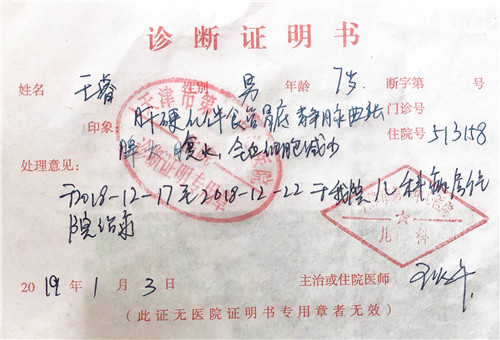 诊断证明书
姓名 王睿 性别 男 年龄 7岁 断字第 号
门诊号
印象: 肝硬化伴食管胃底静脉曲张 住院号 513158
脾 腹水,全血细胞减少
处理意见:
于2018-12-17至2018-12-22于我院儿科病房住
院治疗
天津市第 医院
诊断证明专用章
儿科
2019年1月3日 主治或住院医师
(此证无医院证明书专用章者无效)